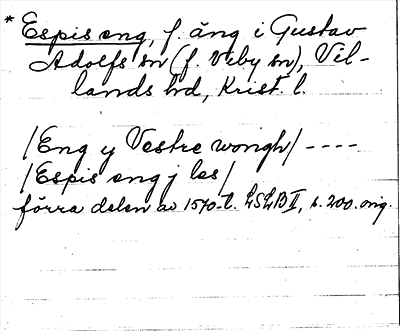 * Espis eng, f. äng i Gustav
Adolfs sn (f. Viby sn), Vil-
lands hd, Krist. l.
/Eng y Vestre wongh/ ----
/Espis eng j les/
förra delen av 1570-t. LSLB II, s. 200. orig.